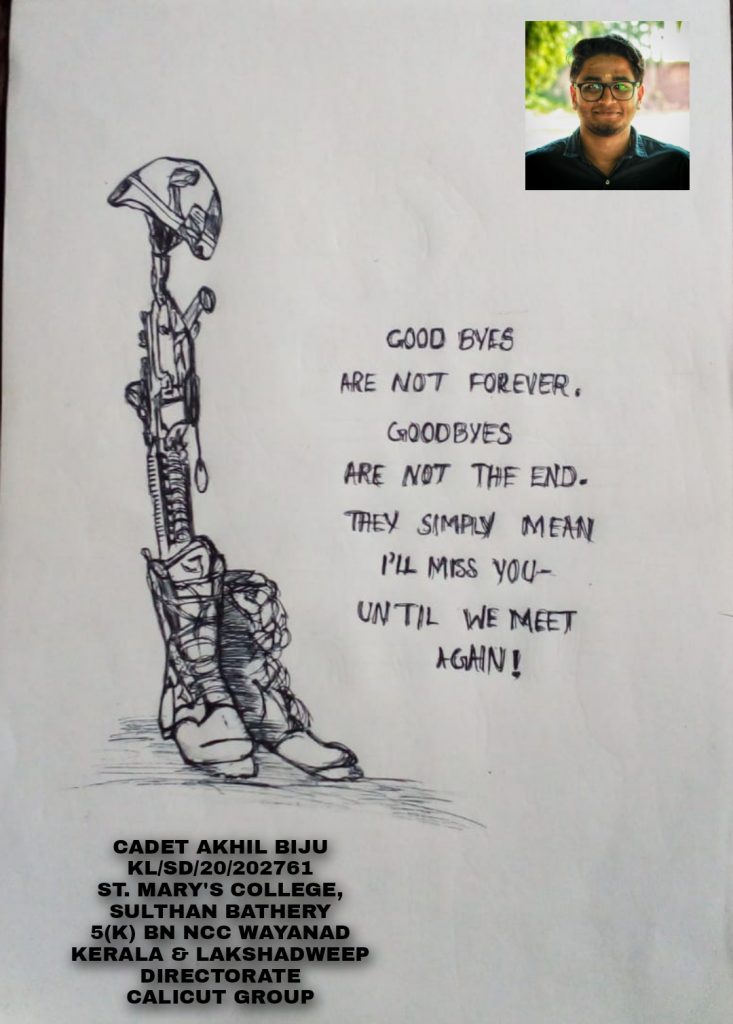 GOOD BYES
ARE NOT FOREVER.
GOODBYES
ARE NOT THE END.
THEY SIMPLY MEAN
I'LL MISS YOU-
UNTIL WE MEET
AGAIN!
CADET AKHIL BIJU
KL/SD/20/202761
ST. MARY'S COLLEGE,
SULTHAN BATHERY
5(K) BN NCC WAYANAD
KERALA & LAKSHADWEEP
DIRECTORATE
CALICUT GROUP